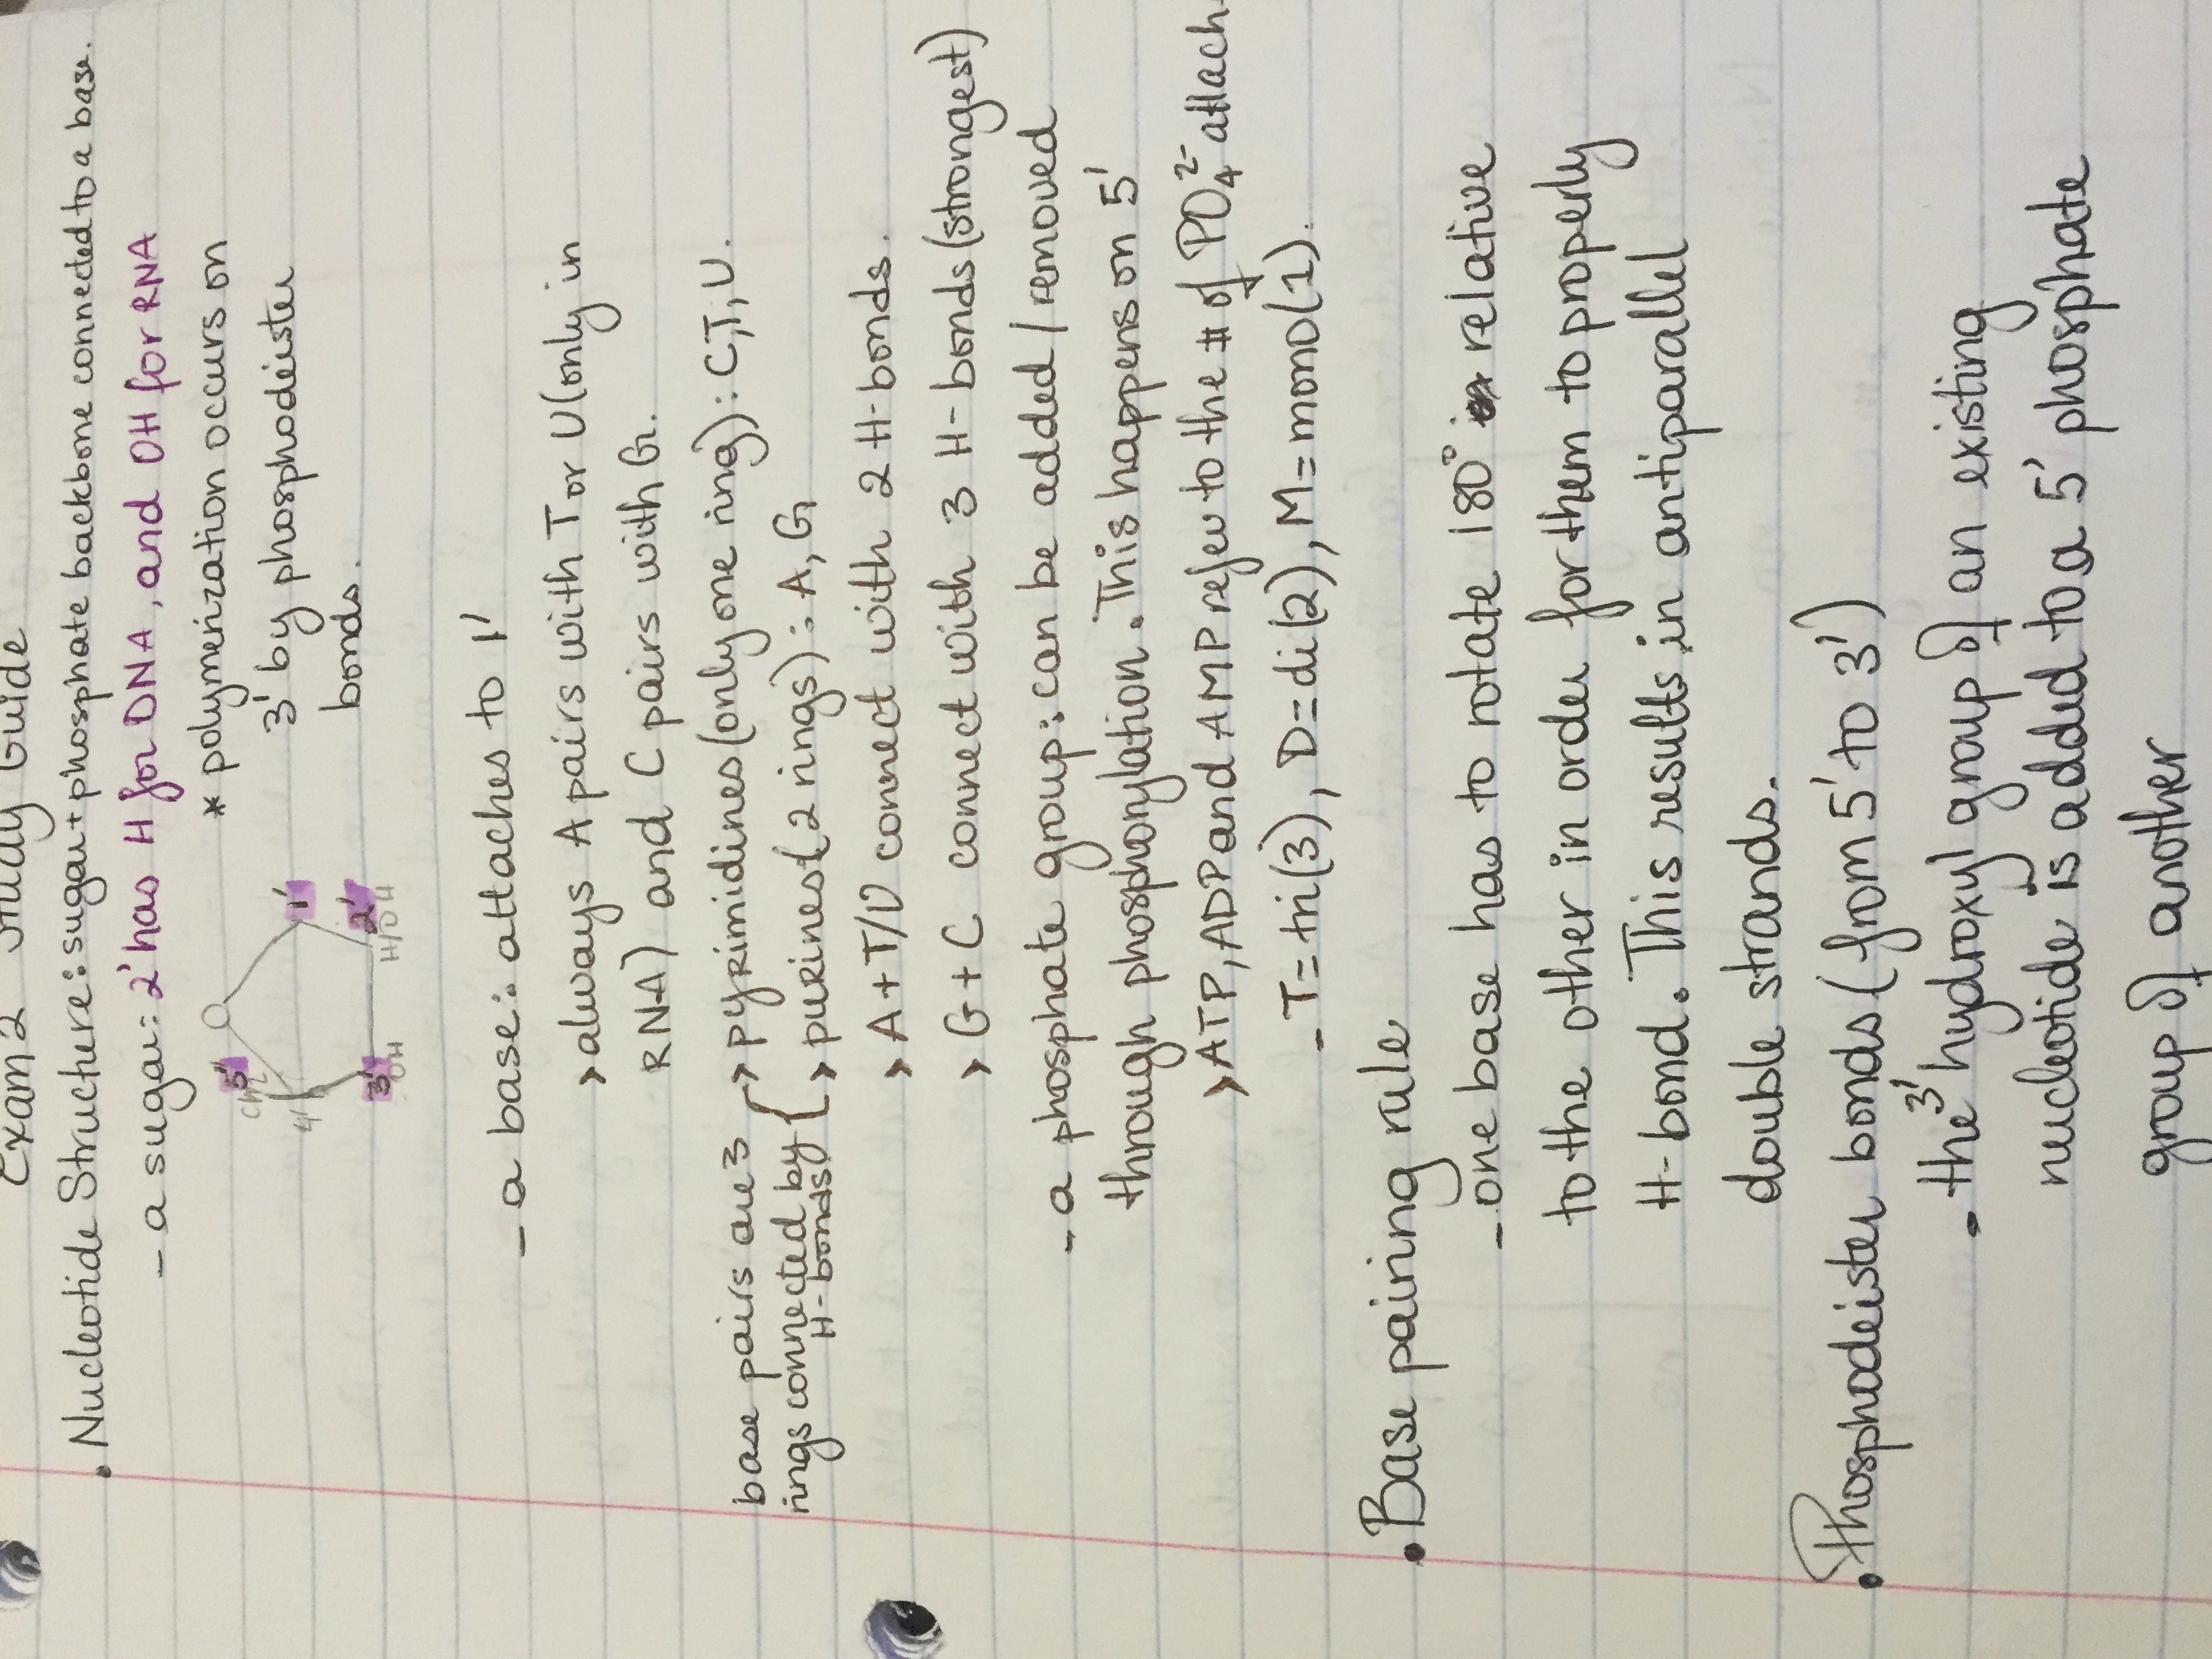 Exam 2 Study Guide
• Nucleotide Structure: sugar + phosphate backbone connected to a base.
- a sugar: 2' has H for DNA, and OH for RNA
* polymerization occurs on
3' by phosphodeister
bonds.
5'
CH2
O
4'
1'
3'
2'
OH
H/OH
- a base: attaches to 1'
> always A pairs with T or U (only in
RNA) and C pairs with G.
base pairs are 3
rings connected by
H-bonds
{
→ pyrimidines (only one ring): C,T,U.
> purines (2 rings): A, G
> A + T/U connect with 2 H-bonds.
> G + C connect with 3 H-bonds (strongest)
- a phosphate group: can be added / removed
through phosphorylation. This happens on 5'
> ATP, ADP and AMP refer to the # of PO4 2- attach
- T = tri (3), D = di (2), M = mono (1).
• Base pairing rule
- one base has to rotate 180° relative
to the other in order for them to properly
H-bond. This results in antiparallel
double strands.
• Phosphodeister bonds (from 5' to 3')
- the 3' hydroxyl group of an existing
nucleotide is added to a 5' phosphate
group of another